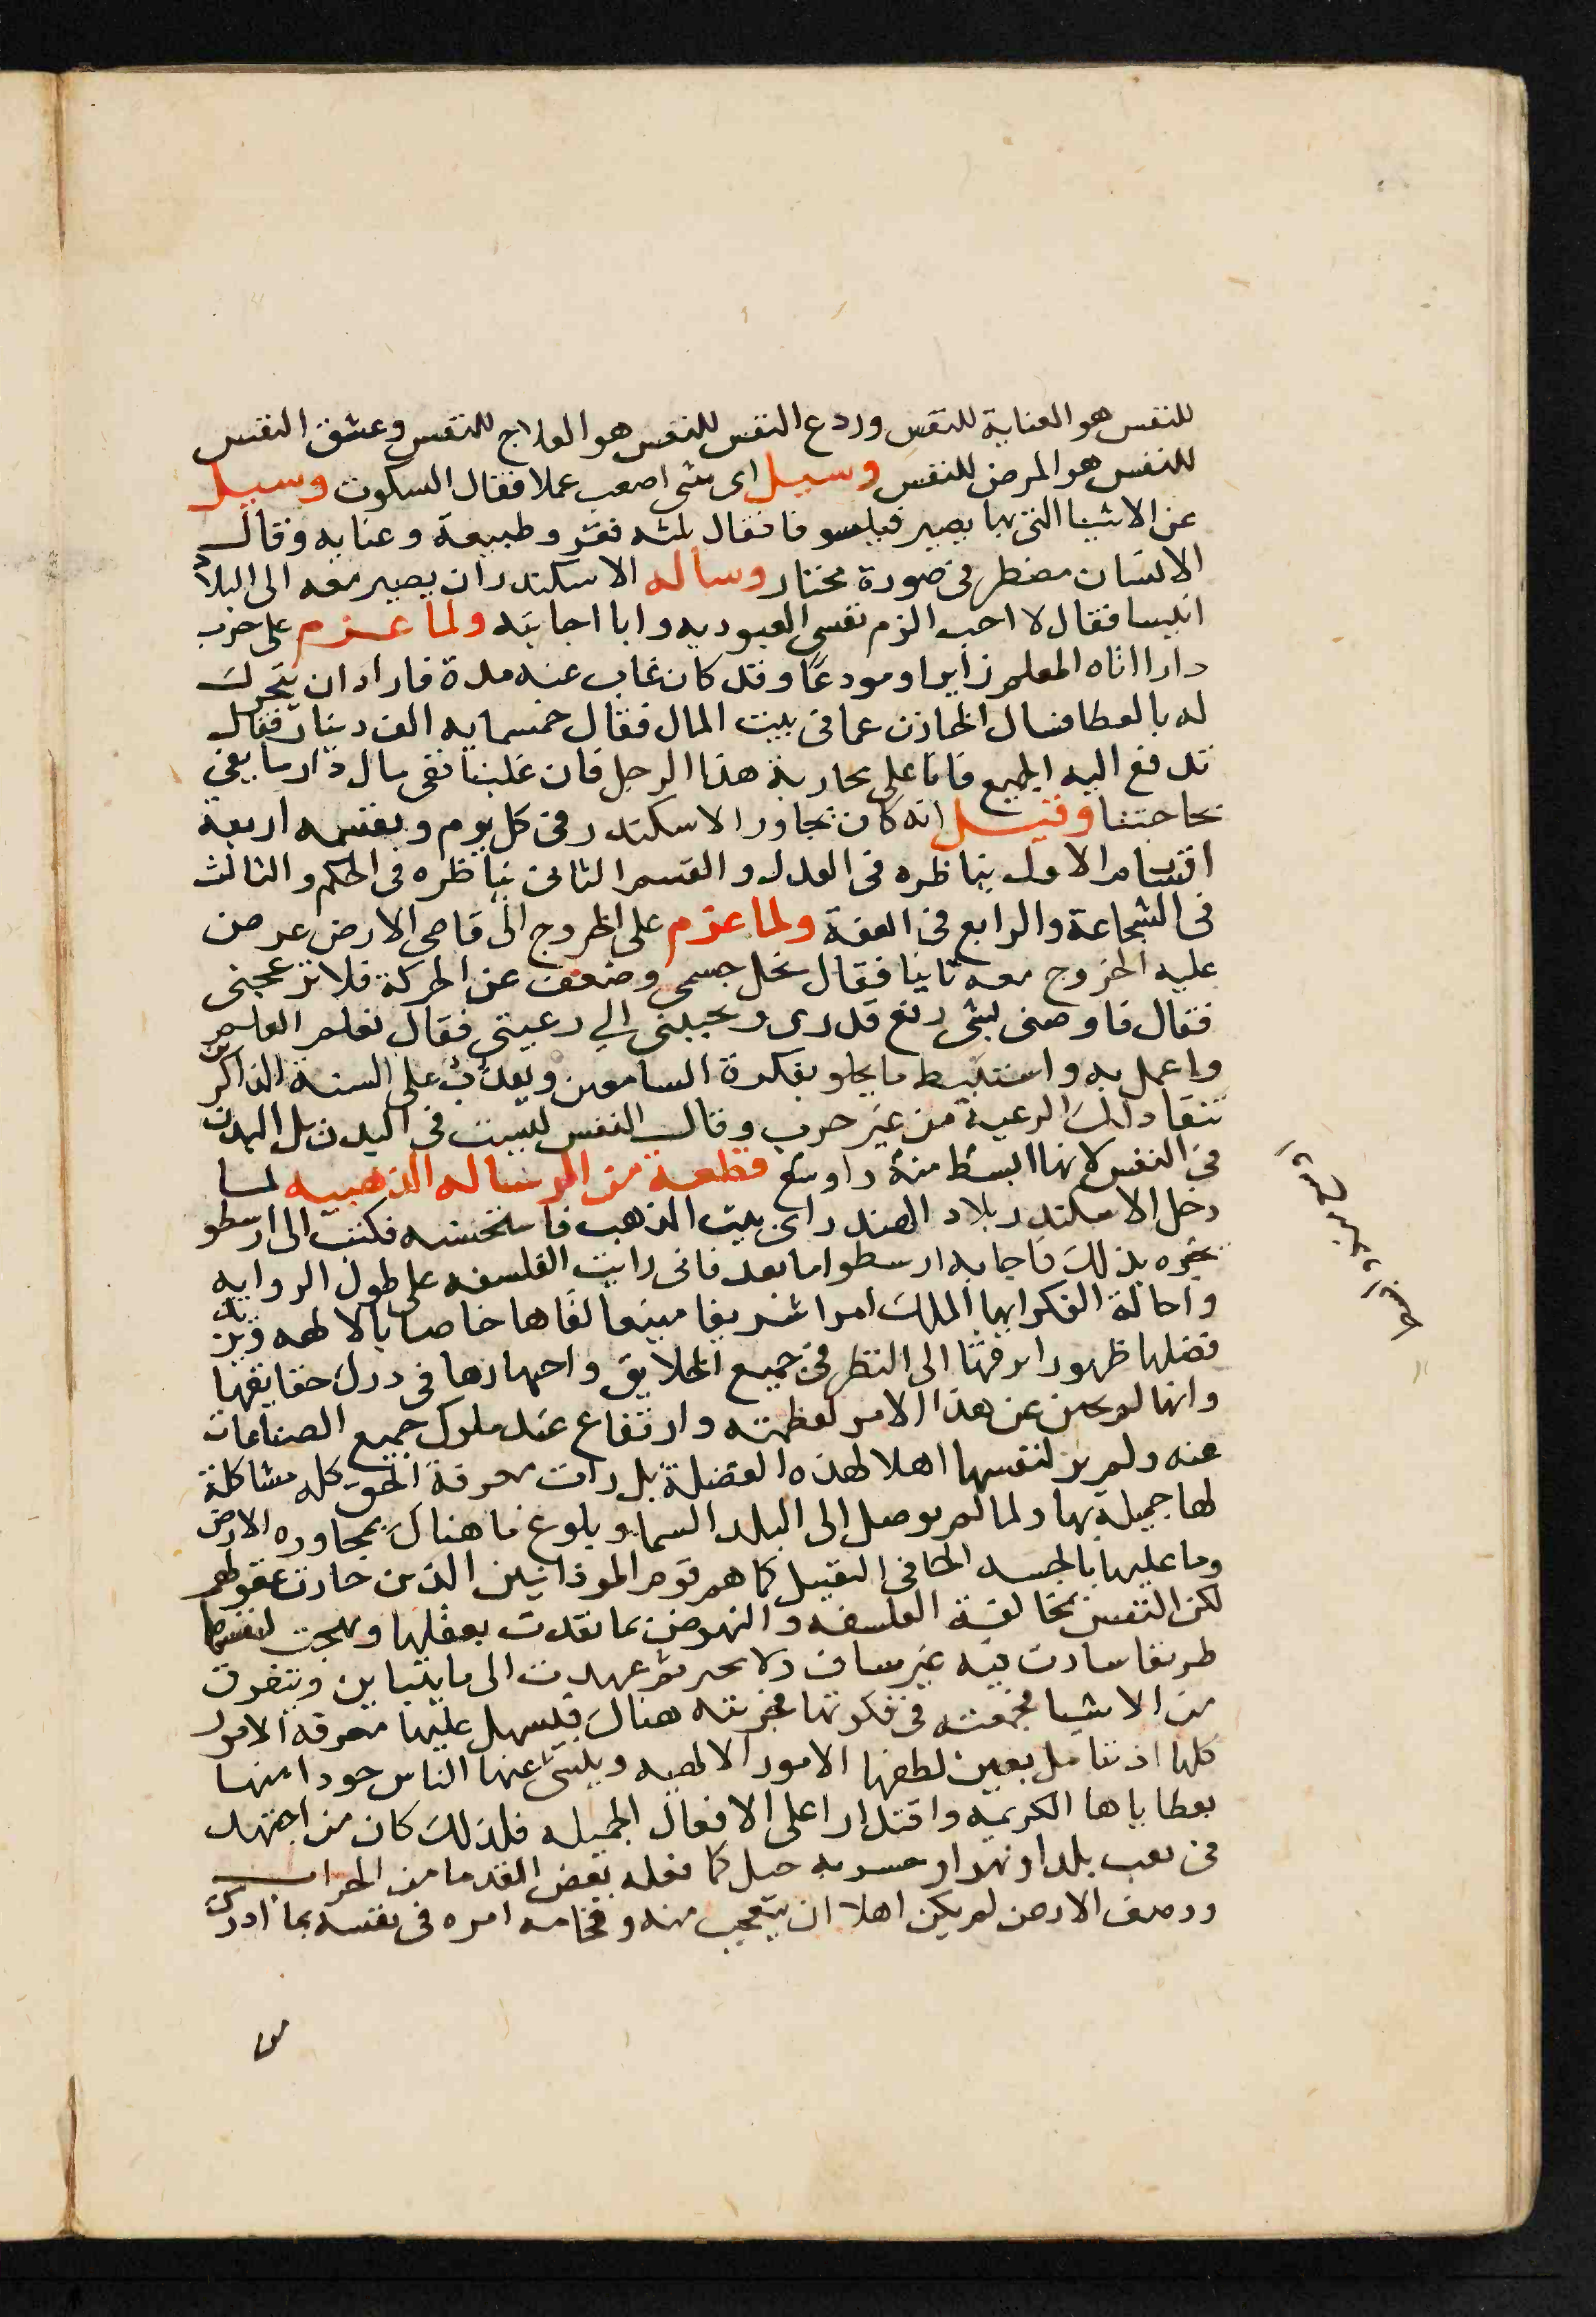 للنفس هو العناية للنفس وردع النفس للنفس هو العلاج للنفس وعشق النفس
للنفس هو المرض للنفس وسيل اى شى اصعب عملا فقال السكوت وسيل
عن الاشيا التى بها يصير فيلسوفا فقال ثلثه فقر وطبيعة وعنايه وقال
الانسان مضطر فى صورة مختار وساله الاسكندر ان يصير معه الى البلاد
اسيا فقال لا احب الزم نفسى العبوديه وابا اجابته ولما عزم على حرب
دارا اتاه المعلم زايرا ومودعا وقد كان غاب عنه مدة فاراد ان يتحرك
له بالعطا فسال الخازن عما فى بيت المال فقال خمسمايه الف دينار فقال
تدفع اليه الجميع فانا على محاربة هذا الرجل فان غلبنا ففى مال دارا ما يفى
بحاجتنا وقيل انه كان يحاور الاسكندر فى كل يوم ويقسمه اربعة
اقسام الاول يناظره فى العدل والقسم الثانى يناظره فى الحكم والثالث
فى الشجاعة والرابع فى العفة ولما عزم على الخروج الى قاصى الارض عرض
عليه الخروج معه ثانيا فقال نحل جسمى وضعف عن الحركة فلا تزعجنى
فقال فاوصنى بشى رفع قدرى ويحببنى الي رعيتى فقال تعلم العلم
واعمل به واستنبط ما يحلو بفكرة السامعين ويعذب على السنة الذاكرين
تنقاد لك الرعية من غير حرب وقال النفس ليست فى البدن بل البدن
فى النفس لانها ابسط منه واوسع قطعة من الرساله الذهبيه لما
دخل الاسكندر بلاد الهند راى بيت الذهب فاستحسنه فكتب الى ارسطو
يخبره بذلك فاجابه ارسطو اما بعد فانى رايت الفلسفه على طول الروايه
واحالة الفكر ايها الملك امرا شريفا منيعا لقاها خاصا بالالهه وتزيد
فضلها ظهورا برفقنا الى النظر فى جميع الخلايق واجهارها فى درك حقايقها
وانها لم تجبن عن هذا الامر لعظمته وارتفاع عند ملوك جميع الصناعات
عنه ولم تر لنفسها اهلا لهذه الفضلة بل رات معرفة الحق كله مشاكلة
لها جميلة بها ولما لم يوصل الى البلد السماو بلوغ ما هناك بمجاوره الارض
وما عليها بالجسد الجافى الثقيل كما هم قوم الموذانيين الذين حارت عقولهم
لكن النفس بمخالفة الفلسفه والنهوض بما نفدت بعقلها ونهجت لنفسها
طريقا سارت فيه غير سان ولا ثم عهدت الى ما يتباين ويتفرق
من الاشيا فجمعته فى فكرتها فخزنته هناك فيسهل عليها معرفة الامور
كلها اذ تتامل بعين لطفها الامور الالهيه وينبى عنها الناس جودا منها
بعطاياها الكريمه واقتدارا على الافعال الجميله فلذلك كان من اجتهد
فى بلد او نهر او جبل كما فعله بعض القدما من
ووصف الارض لم يكن اهلا ان يتعجب منه وفخامه امره فى نفسه بما ادرك
من